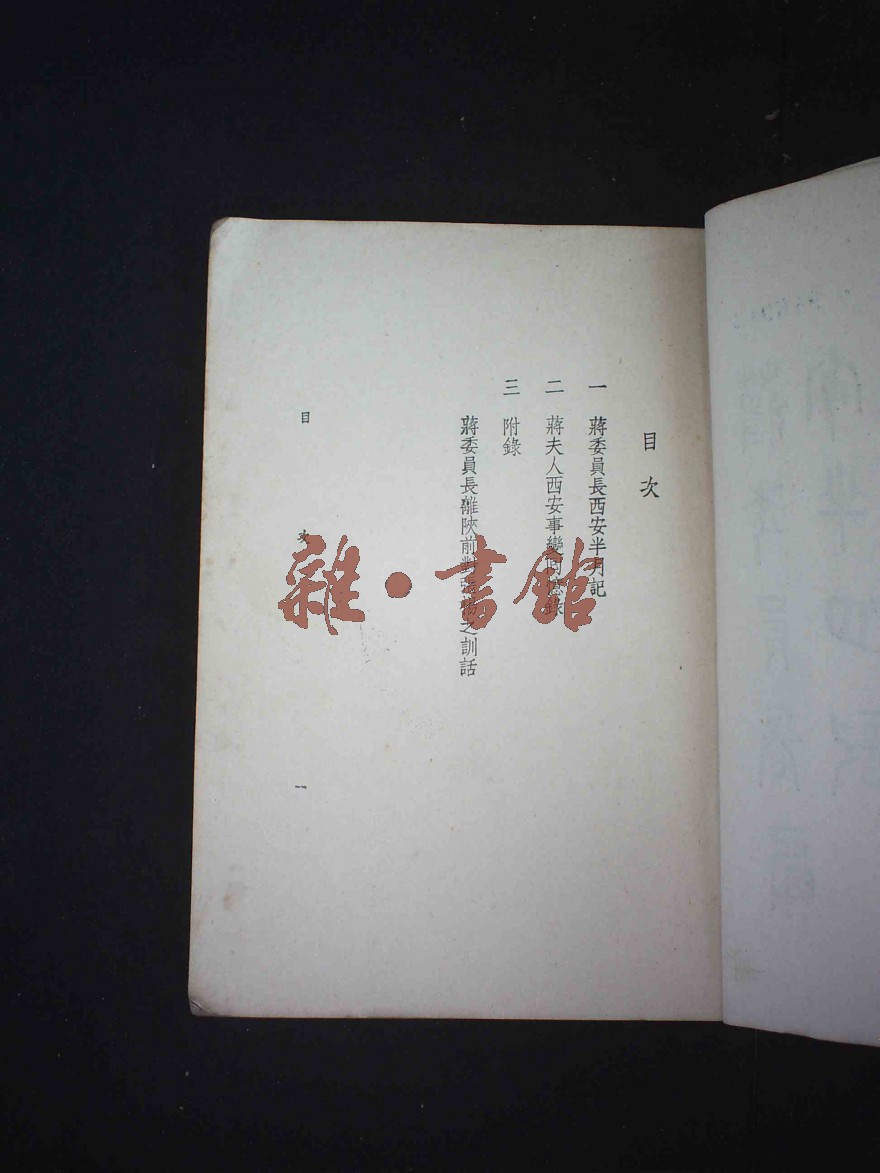 目次
一 蔣委員長西安半月記
二 蔣夫人西安事變回憶錄
三 附錄
蔣委員長離陝前對張楊之訓話
目 次 一
雜·書館